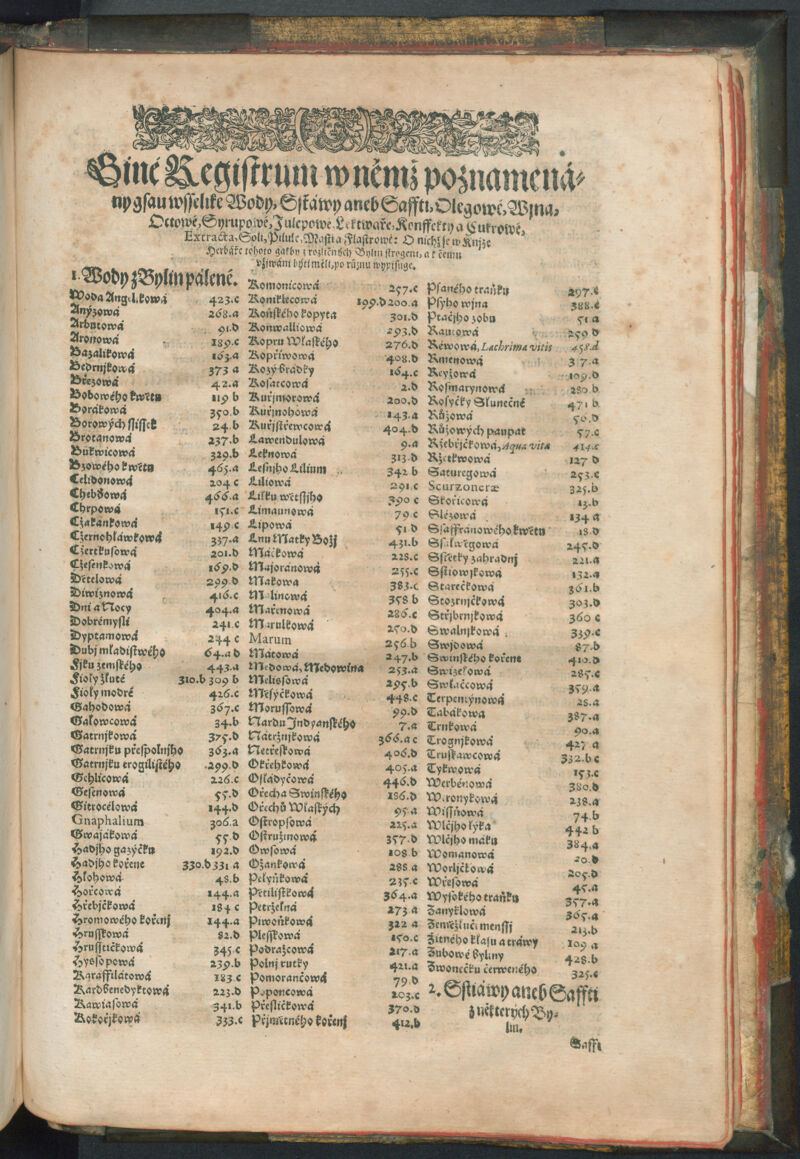 Giné Registrum w němž poznamená-
ny gsau wsselike Wody, Sstáwy aneb Saffti, Olegowé, Wjna,
Octowé, Syrupowé, Julepowe, Lektwaře, Konffekty a Cukrowé,
Extracta, Soli, Pilule, Masti a Flastrowé: O nichž se w Knize
Herbáře tohoto gakby z rozličných Bylin strogeni, a k čemu
vžjwáni býti měli, po různu wypisuge.
1. Wody z Bylin pálené.
Woda Angelikowá 423.c
Anýzowá 268.a
Arbutowá 91.d
Aronowá 189.c
Bazalikowá 163.a
Bedrnjkowá 373 a
Březowá 42.a
Bobowého kwětu 119 b
Borákowá 350.b
Borowých ssissek 24.b
Brotanowá 237.b
Bukwicowá 329.b
Bzowého kwětu 465.a
Celidonowá 204 c
Chebdowá 466.a
Chrpowá 151.c
Čakankowá 149.c
Černohláwkowá 337.a
Čertkusowá 201.d
Česenkowá 169.d
Dětelowá 299.d
Diwiznowá 416.c
Dni a Nocy 404.a
Dobrémysli 241.c
Dyptamowá 244 c
Dubj mladistwého 64.a d
Fjku zemského 443.a
Fioly žluté 310.b 309 b
Fioly modré 426.c
Gahodowá 367.c
Galowcowá 34.b
Gatrnjkowá 375.d
Gatrnjku přespolnjho 363.a
Gatrnjku erogilistého 299.d
Gehlicowá 226.c
Gesenowá 55.d
Gitrocélowá 144.d
Gnaphalium 306.a
Gwajakowá 55.d
Hadjho gazýčku 192.d
Hadjho kořene 330.d 331 a
Hlohowá 48.b
Hořcowá 144.a
Hřebjčkowá 184 c
Hromowého kořenj 144.a
Hrusskowá 82.d
Hrusstičkowá 345.c
Hyssopowá 239.b
Karaffilátowá 183.c
Kardbenedyktowá 223.d
Kawiasowá 341.b
Kokořjkowá 333.c
Komonicowá 257.c
Konikleцowá 199.d 200.a
Koňského kopyta 301.d
Konwalliowá 293.b
Kopru Wlaského 276.d
Kopřiwowá 408.d
Kozý bradky 164.c
Kosatcowá 2.d
Kuřjmorowá 200.d
Kuřjnohowá 143.a
Kuřjstřewcowá 404.d
Lawendulowá 9.a
Leknowá 313.d
Lesnjho Lilium 342 b
Liliowá 291.c
Lisku wětssjho 390 c
Limaunowá 79 c
Lipowá 51 d
Lnu Matky Božj 431.b
Máčkowá 228.c
Majoránowá 255.c
Makowa 383.c
Malinowá 358 b
Mařenowá 286.c
Marulkowá 250.d
Marum 256 b
Mátowá 247.b
Medowá, Medowina 253.a
Melissowá 295.b
Měsýčkowá 448.c
Morussowá 99.d
Nardu Jndyanského 7.a
Nátržnjkowá 366.a c
Netřeskowá 406.d
Okřehkowá 405.a
Osladyčowá 446.d
Ořecha Swinského 186.d
Ořechů Wlaských 95 a
Ostropsowá 225.a
Ostružinowá 357.d
Owsowá 108 b
Ožankowá 288 a
Pelyňkowá 235.c
Pětilistkowá 364.a
Petrželná 273 a
Piwoňkowá 322 a
Plesskowá 150.c
Podražcowá 217.a
Polnj rutky 421.a
Pomorančowá 79.d
Poponcowá 203.c
Přesličkowá 370.d
Přjmětného kořenj 412.b
Psaného traňku 297.c
Psyho wjna 388.c
Ptačjho zobu 51 a
Rautowá 259 d
Réwowá, Lachrima vitis 458.d
Rmenowá 317.a
Reyžowá 109.d
Rosmarynowá 280 b.
Rosyčky Slunečné 471 b.
Růžowá 50.d
Růžowých paupat 57.c
Ržebřjčkowá, Aqua vita 414.c
Ržetkwowá 127 d
Saturegowá 253.c
Scurzoneræ 325.b
Skořicowá 13.b
Slézowá 134 a
Ssaffranowého kwětu 18.d
Ssalwěgowá 245.d
Sstětky zahradnj 221.a
Sstiowjkowá 132.a
Starečkowá 361.b
Stozrnjčkowá 303.d
Střjbrnjkowá 360 c
Swalnjkowá 339.c
Swjdowá 87.b
Swinského kořene 410.d
Swizelowá 285.c
Swlačcowá 359.a
Terpentýnowá 28.a
Tabákowa 387.a
Trnkowá 90.a
Trognjkowá 427 a
Truskawcowá 332.b c
Tykwowá 153.c
Werbénowá 380.d
Weronykowá 238.a
Wissňowá 74.b
Wlčjho lýka 442 b
Wlčjho máku 384.a
Womanowá 20.d
Worljčkowá 205.d
Wřesowá 45.a
Wysokého traňku 357.a
Zanyklowá 365.a
Zeměžluči menssj 213.b
Žitného klasu a tráwy 109 a
Zubowé byliny 428.b
Zwonečku čerweného 325.c
2. Sstiáwy aneb Saffti
z některých By-
lin.
Saffi